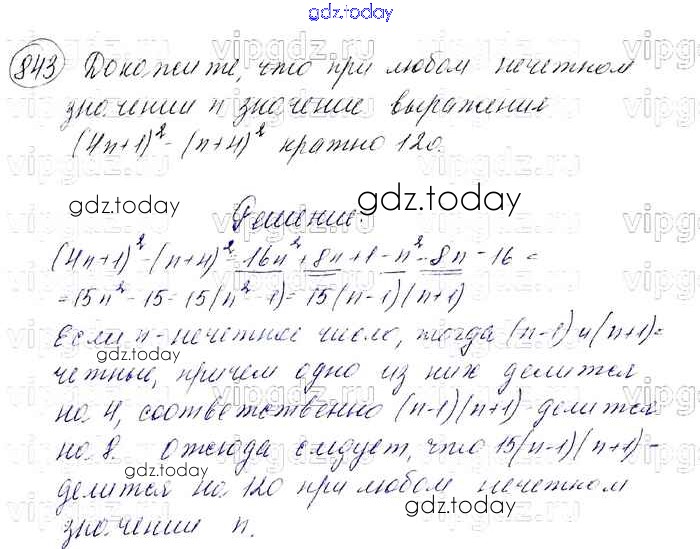 gdz.today
843 Докажите, что при любом нечетном
значении n значение выражения
(4n+1)² - (n+4)² кратно 120.
gdz.today
gdz.today
Решение:
(4n+1)² - (n+4)² = 16n² + 8n + 1 - n² - 8n - 16 =
= 15n² - 15 = 15(n² - 1) = 15(n-1)(n+1)
Если n - нечетное число, тогда (n-1) и (n+1) -
gdz.today
четные, причем одно из них делится
на 4, соответственно (n-1)(n+1) делится
на 8. Отсюда следует, что 15(n-1)(n+1) -
gdz.today
gdz.today
делится на 120 при любом нечетном
значении n.